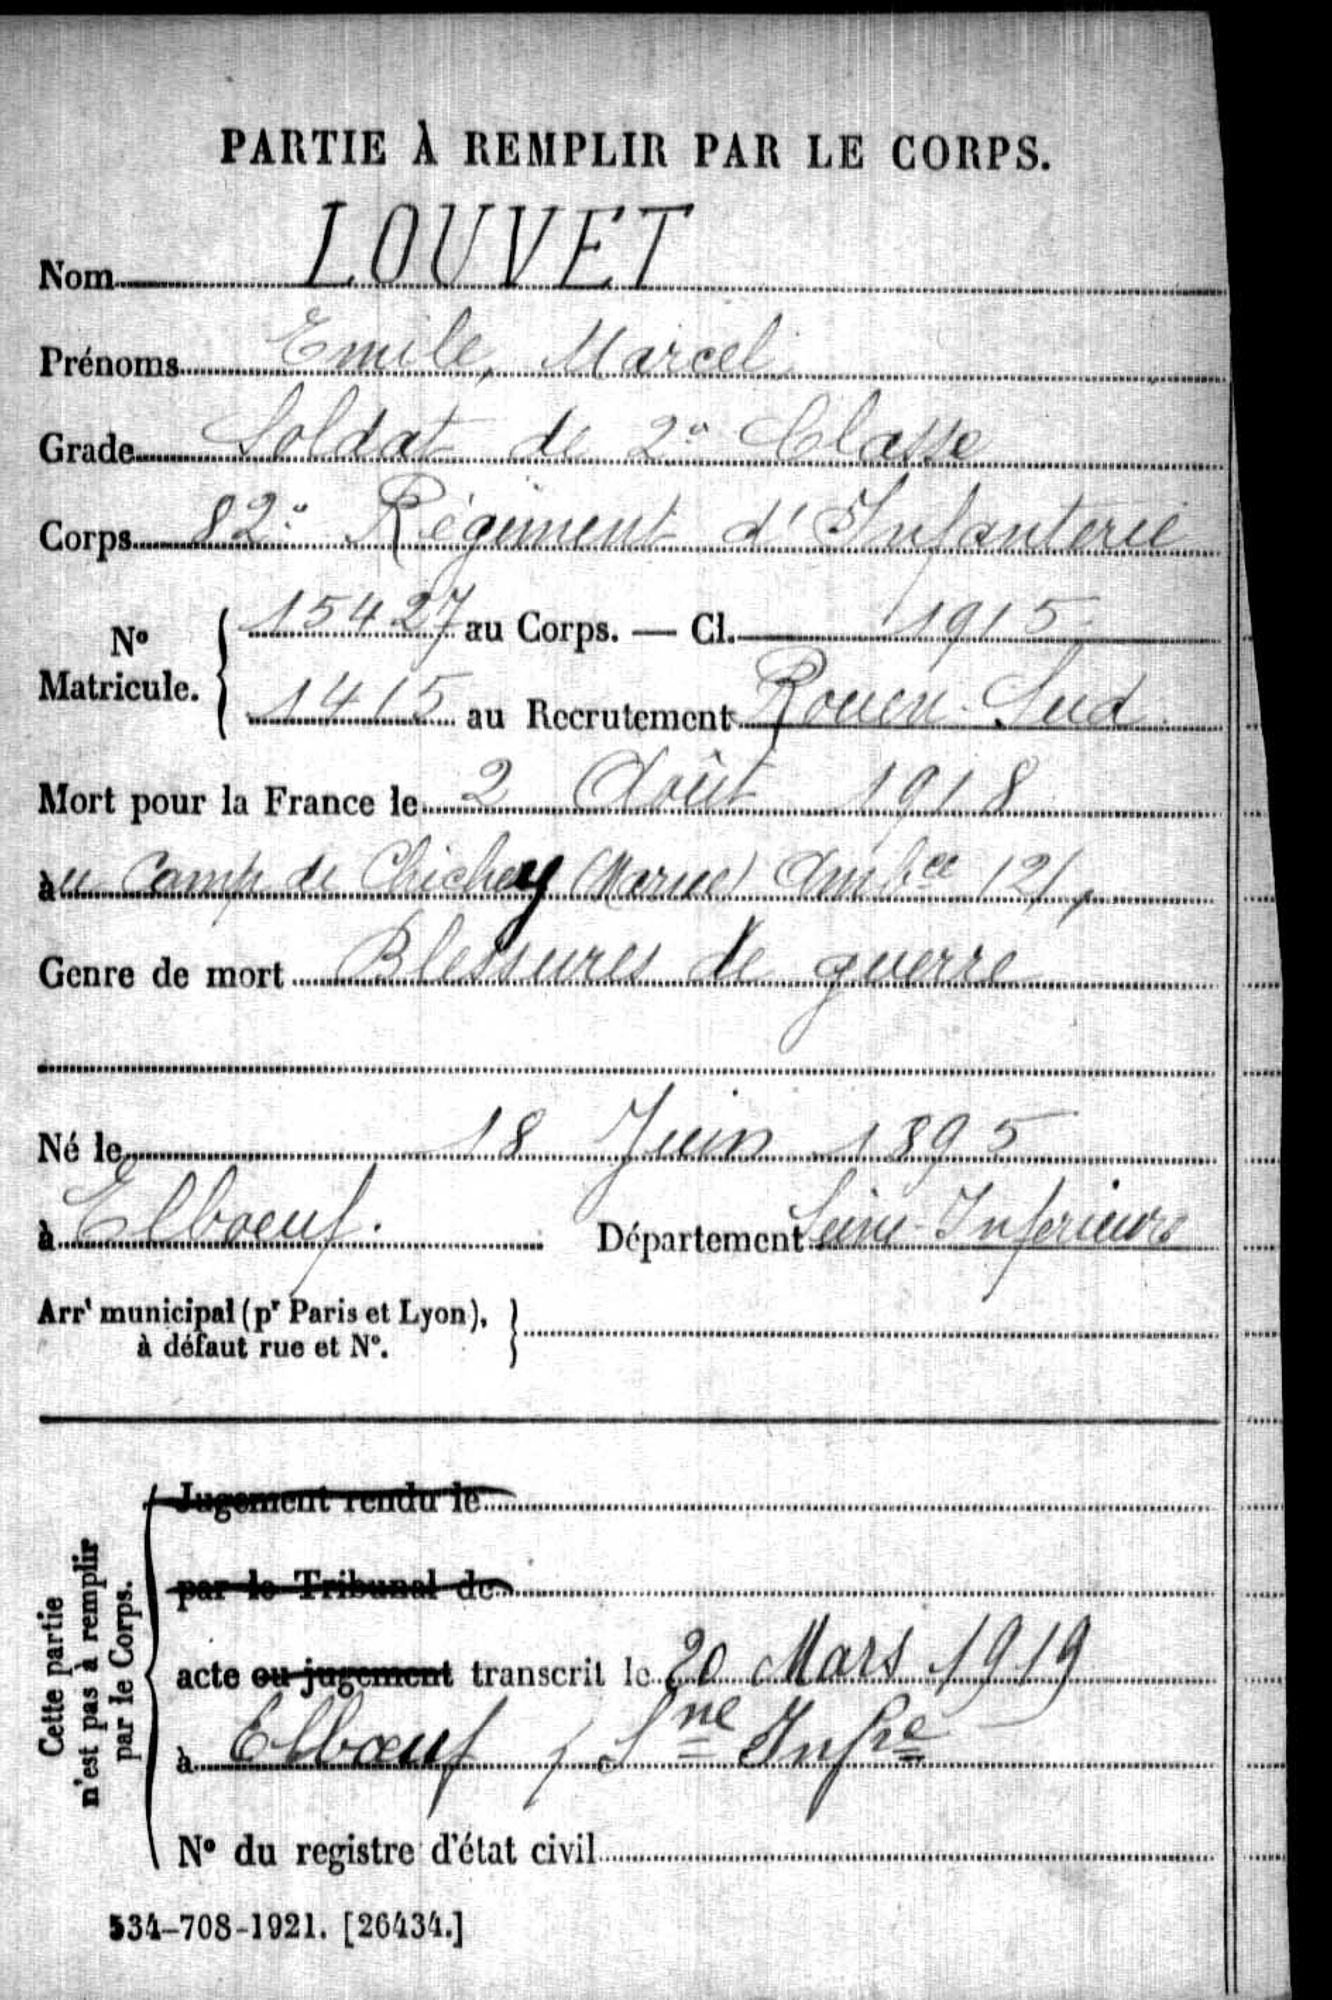 PARTIE À REMPLIR PAR LE CORPS.
Nom LOUVET
Prénoms Emile, Marcel
Grade Soldat de 2e Classe
Corps 82e Régiment d'Infanterie
No Matricule. { 15427 au Corps. — Cl. 1915
1415 au Recrutement Rouen-Sud
Mort pour la France le 2 Août 1918
àu Camp de Chichey (Marne) Ambce 121,
Genre de mort Blessures de guerre
Né le 18 Juin 1895
à Elboeuf. Département Seine-Inferieure
Arrt municipal (pr Paris et Lyon), à défaut rue et No. }
Cette partie n'est pas à remplir par le Corps.
Jugement rendu le
par le Tribunal de
acte ou jugement transcrit le 20 Mars 1919
à Elbœuf / Sne Infre
No du registre d'état civil
534-708-1921. [26434.]